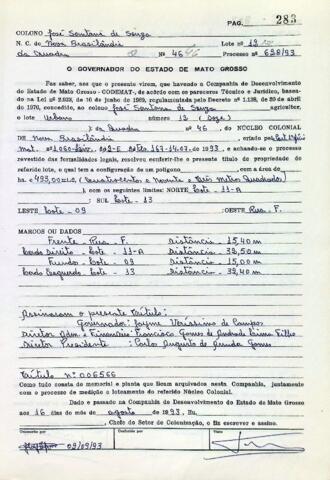 PAG. 283
COLONO José Santani de Souza
N. C. do Nova Brasilândia Lote nº 13
da Quadra Nº 46 Processo nº 638/93
O GOVERNADOR DO ESTADO DE MATO GROSSO
Faz saber, aos que o presente virem, que havendo a Companhia de Desenvolvimento
do Estado de Mato Grosso - CODEMAT, de acordo com os pareceres Técnico e Jurídico, baseados
na Lei nº 2.922, de 16 de junho de 1969, regulamentada pelo Decreto nº 1.138, de 20 de abril
de 1970, concedido, ao colono José Santana de Souza
o lote Urbano número 13
da Quadra nº 46, NÚCLEO COLONIAL
DE Nova Brasilândia
1993, e achando-se o processo
revestido das formalidades legais, resolveu conferir-lhe o presente título de propriedade do
referido lote, o qual tem a configuração de um polígono com a área de
ha 493,00 m2 (Quatrocentos e Noventa e Três Metros Quadrados)
), com os seguintes limites: NORTE Lote - 11-A
SUL Lote - 13
LESTE Lote - 09 OESTE Rua - F.
MARCOS OU DADOS
Frente - Rua - F. Distância - 15,40 m
Lado Direito - Lote - 11-A Distância - 32,50 m
Fundo - Lote - 09 Distância - 15,00 m
Lado Esquerdo - Lote - 13 Distância - 32,40 m
Assinaram o presente Título:
Governador: Jayme Veríssimo de Campos
Diretor Adm. e Financeiro: Francisco Gomes de Andrade Lima Filho
Diretor Presidente: Carlos Augusto de Arruda Gomes
Título Nº 006566
Como tudo consta do memorial e planta que ficam arquivados nesta Companhia, juntamente
com o processo de medição e loteamento do referido Núcleo Colonial.
Dado e passado na Companhia de Desenvolvimento do Estado de Mato Grosso
aos 16 dias do mês de agosto de 1993, Eu,
Chefe do Setor de Colonização, o fiz escrever e assino.
09/09/93